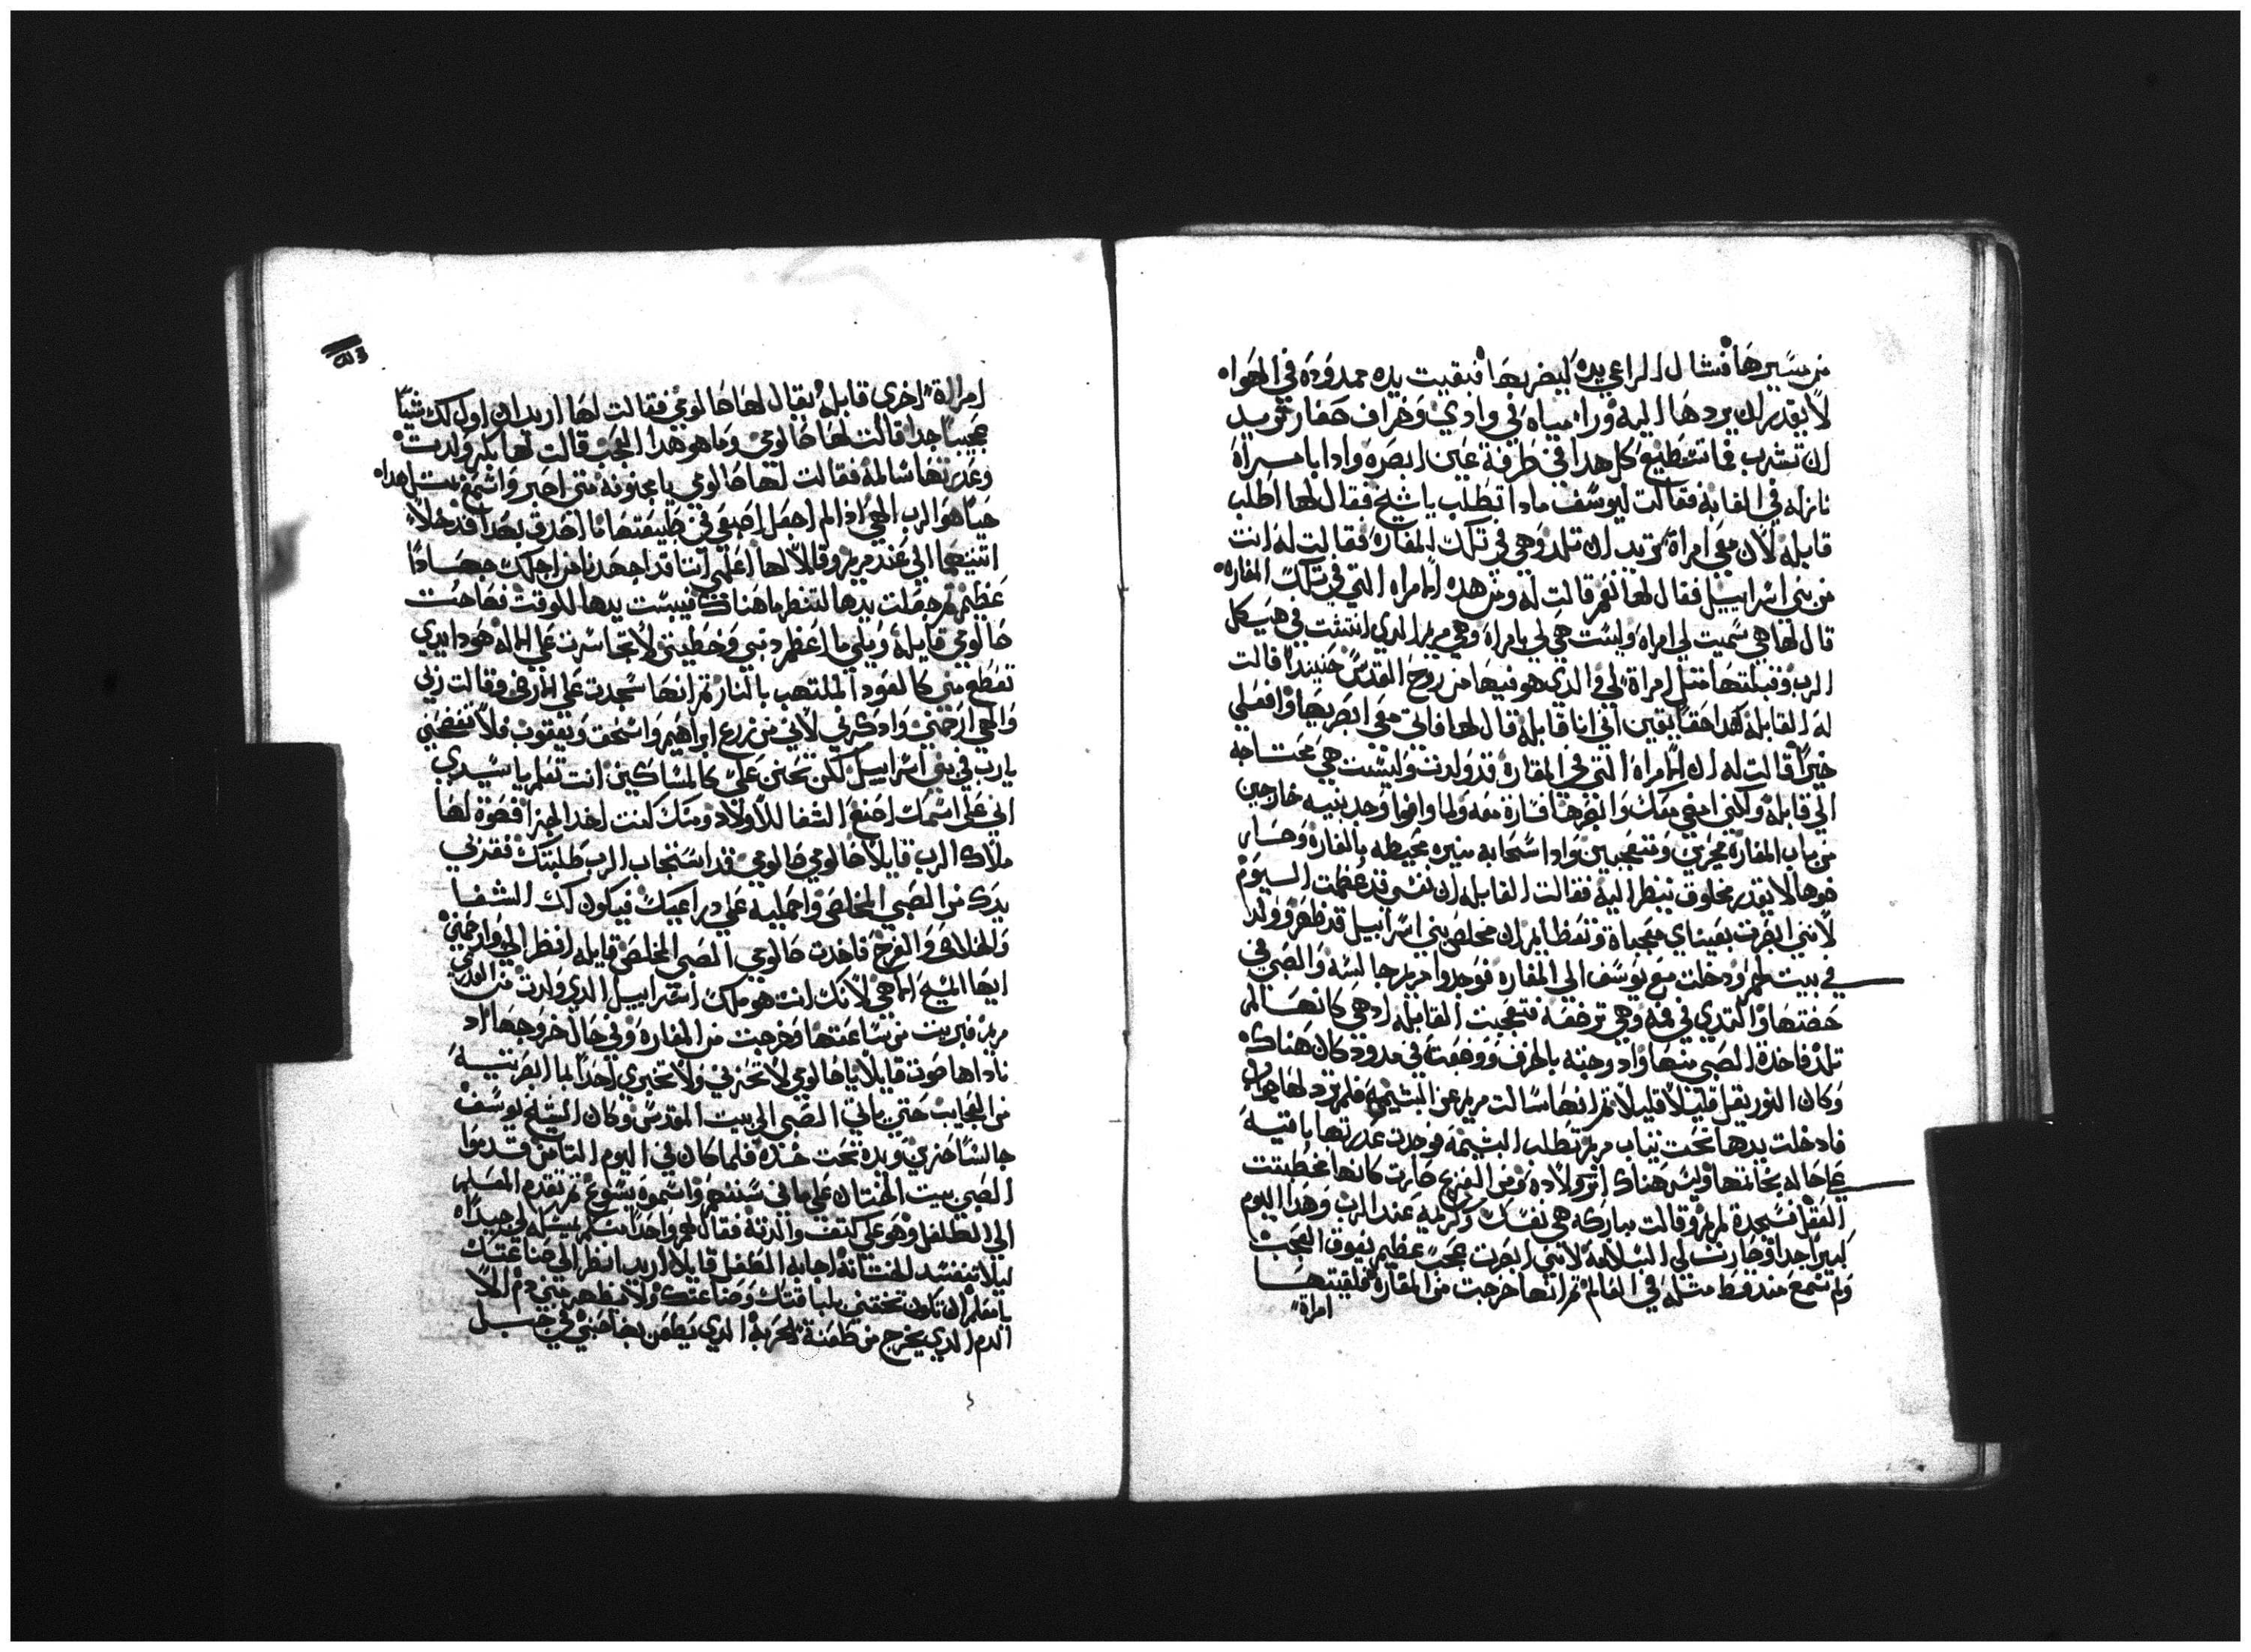 من مسيرها فشال الراعي يده ليضربها فبقيت يده ممدوده في الهواه
لا يقدر ان يردها اليه وراا مياه في وادي وخراف صغار تريد
ان تشرب فما تستطيع كل هدا في طرفة عين ابصره وادا بامراه
نازله في الغابه فقالت ليوسف مادا تطلب يا شيخ فقال لها اطلب
قابله لان معي امراة تريد ان تلد وهي في تلك المغاره فقالت له انت
من بني اسراييل فقال لها نعم قالت له ومن هده الامراه التي في تلك المغاره
قال لها هي سميت لي امراه وليست هي لي بامراه وهي مريم الدي انتشت في هيكل
الرب وقبلتها مثل امراة لي والدي هو فيها من روح القدس حينيدا قالت
له القابله هدا حقا يقين اني انا قابله قال لها فاتي معي ابصريها وافعلي
خيرا قالت له ان الامراه التي في المغاره قد ولدت وليست هي محتاجه
الي قابله ولكني امضي معك وابصرها فساره معه ولما وافوا وجد بنيه خارجين
من باب المغاره محيرين ومتعجبين وادا سحابه منيره محيطه بالمغاره وصار
ضوها لا يقدر مخلوق ينظر اليه فقالت القابله ان نفسي قد عظمت اليوم
لانني ابصرت بعيناي معجباة وتعظايم ان مخلص بني اسراييل قد ظهر وولد
في بيت لحم ودخلت مع يوسف الي المغاره فوجدوا مريم جالسه والصبي في
حضنها والتدي في فمه وهي ترضعه فتعجبت القابله ادهي كانها لم
تلد فاخدة الصبي منها وادوجته بالخرف ووضعته في مدود كان هناك
وكان النور يقل قليلا قليلا ثم انها سالت مريم عن البشيمه فلم ترد لها جواب
فادخلت يدها تحت تياب مريم تطلب البشيمه فوجدت عدرتها باقيه
علي حاله بخاتمها وليس هناك اتر ولاده ومن الفزع صارت كانها مخطبتت
العقل فسجدة لمريم وقالت مباركه هي نفسك وكريمه عند الرب وهدا اليوم
كبيرا جدا وصارت لي السلامه لانني ابصرت عجب عظيم يفوق العجب
ولم تسمع مند قط مثله في العالم ثم انها خرجت من المغاره فلقيتها
امراة
امراة اخري قابله يقال لها صالومي فقالت لها اريد ان اول لك شيا
عجيبا جدا قالت لها صالومي وما هو هدا العجب قالت لها بكر ولدت
وعدرتها سالمه فقالت لها صالومي يا مجنونه متي اصبر واسمع مثل هداه
حيا هو الرب الهي ادا لم اجعل اصبعي في طبيعتها ما اصدق بهدا فدخلا
اتنيهما الي عند مريم وقالا لها اعلمي اننا قد اجهدنا من اجلك جهادا
عظيم ثم جعلت يدها لتنظر ما هناك فيبست يدها للوقت فصاحت
صالومي قايله ويلي ما اعظم دنبي وخطيتي لا تجاسرت علي الاله هودا يدي
تقطع مني كالعود الملتهب بالنار ثم انها سجدت علي الارض وقالت ربي
والهي ارحمني وادكرني لاني من زرع ابراهيم واسحق ويعقوب فلا تفضحني
يارب في بني اسراييل لكن تحنن علي كالمساكين انت تعلم يا سيدي
اني علي اسمك اصنع الشفا للاولاد ومنك كنت اخد الجزا فصوة لها
ملاك الرب قايلا صالومي صالومي قد استجاب الرب طلبتك فقربي
يدك من الصبي المخلص واحمليه علي دراعيك فيكون لك الشفا
والخلاص والفرح فاخدت صالومي الصبي المخلص قايله انظر الي وارحمني
ايها المسيح الاهي لانك انت هو ملك اسراييل الدي ولدت من القديسه
مريم فبريت من ساعتها وخرجت من المغاره وفي حال خروجها اد
ناداها صوت قايلا يا صالومي لا تحزني ولا تخبري احدا بما ابصرتيه
من العجايب حتي ياتي الصبي الي بيت المقدس وكان الشيخ يوسف
جالسا حزين ويده تحت خده فلما كان في اليوم التامن قدموا
الصبي بيت الختان علي ما في سننهم واسموه يسوع ثم تقدم المعلم
الي الطفل وهو علي كتف والدته فقال لهم واحدا منكم يمسكه لي جيداه
ليلا تنفسد الختانه اجابه الطفل قايلا اريد انظر الي صناعتك
يا معلم ان تكون تختني بلباقتك وصناعتك ولا يظهر مني دم الا
الدم الدي يخرج من طعنة الحربه الدي يطعن بها جنبي في جبل